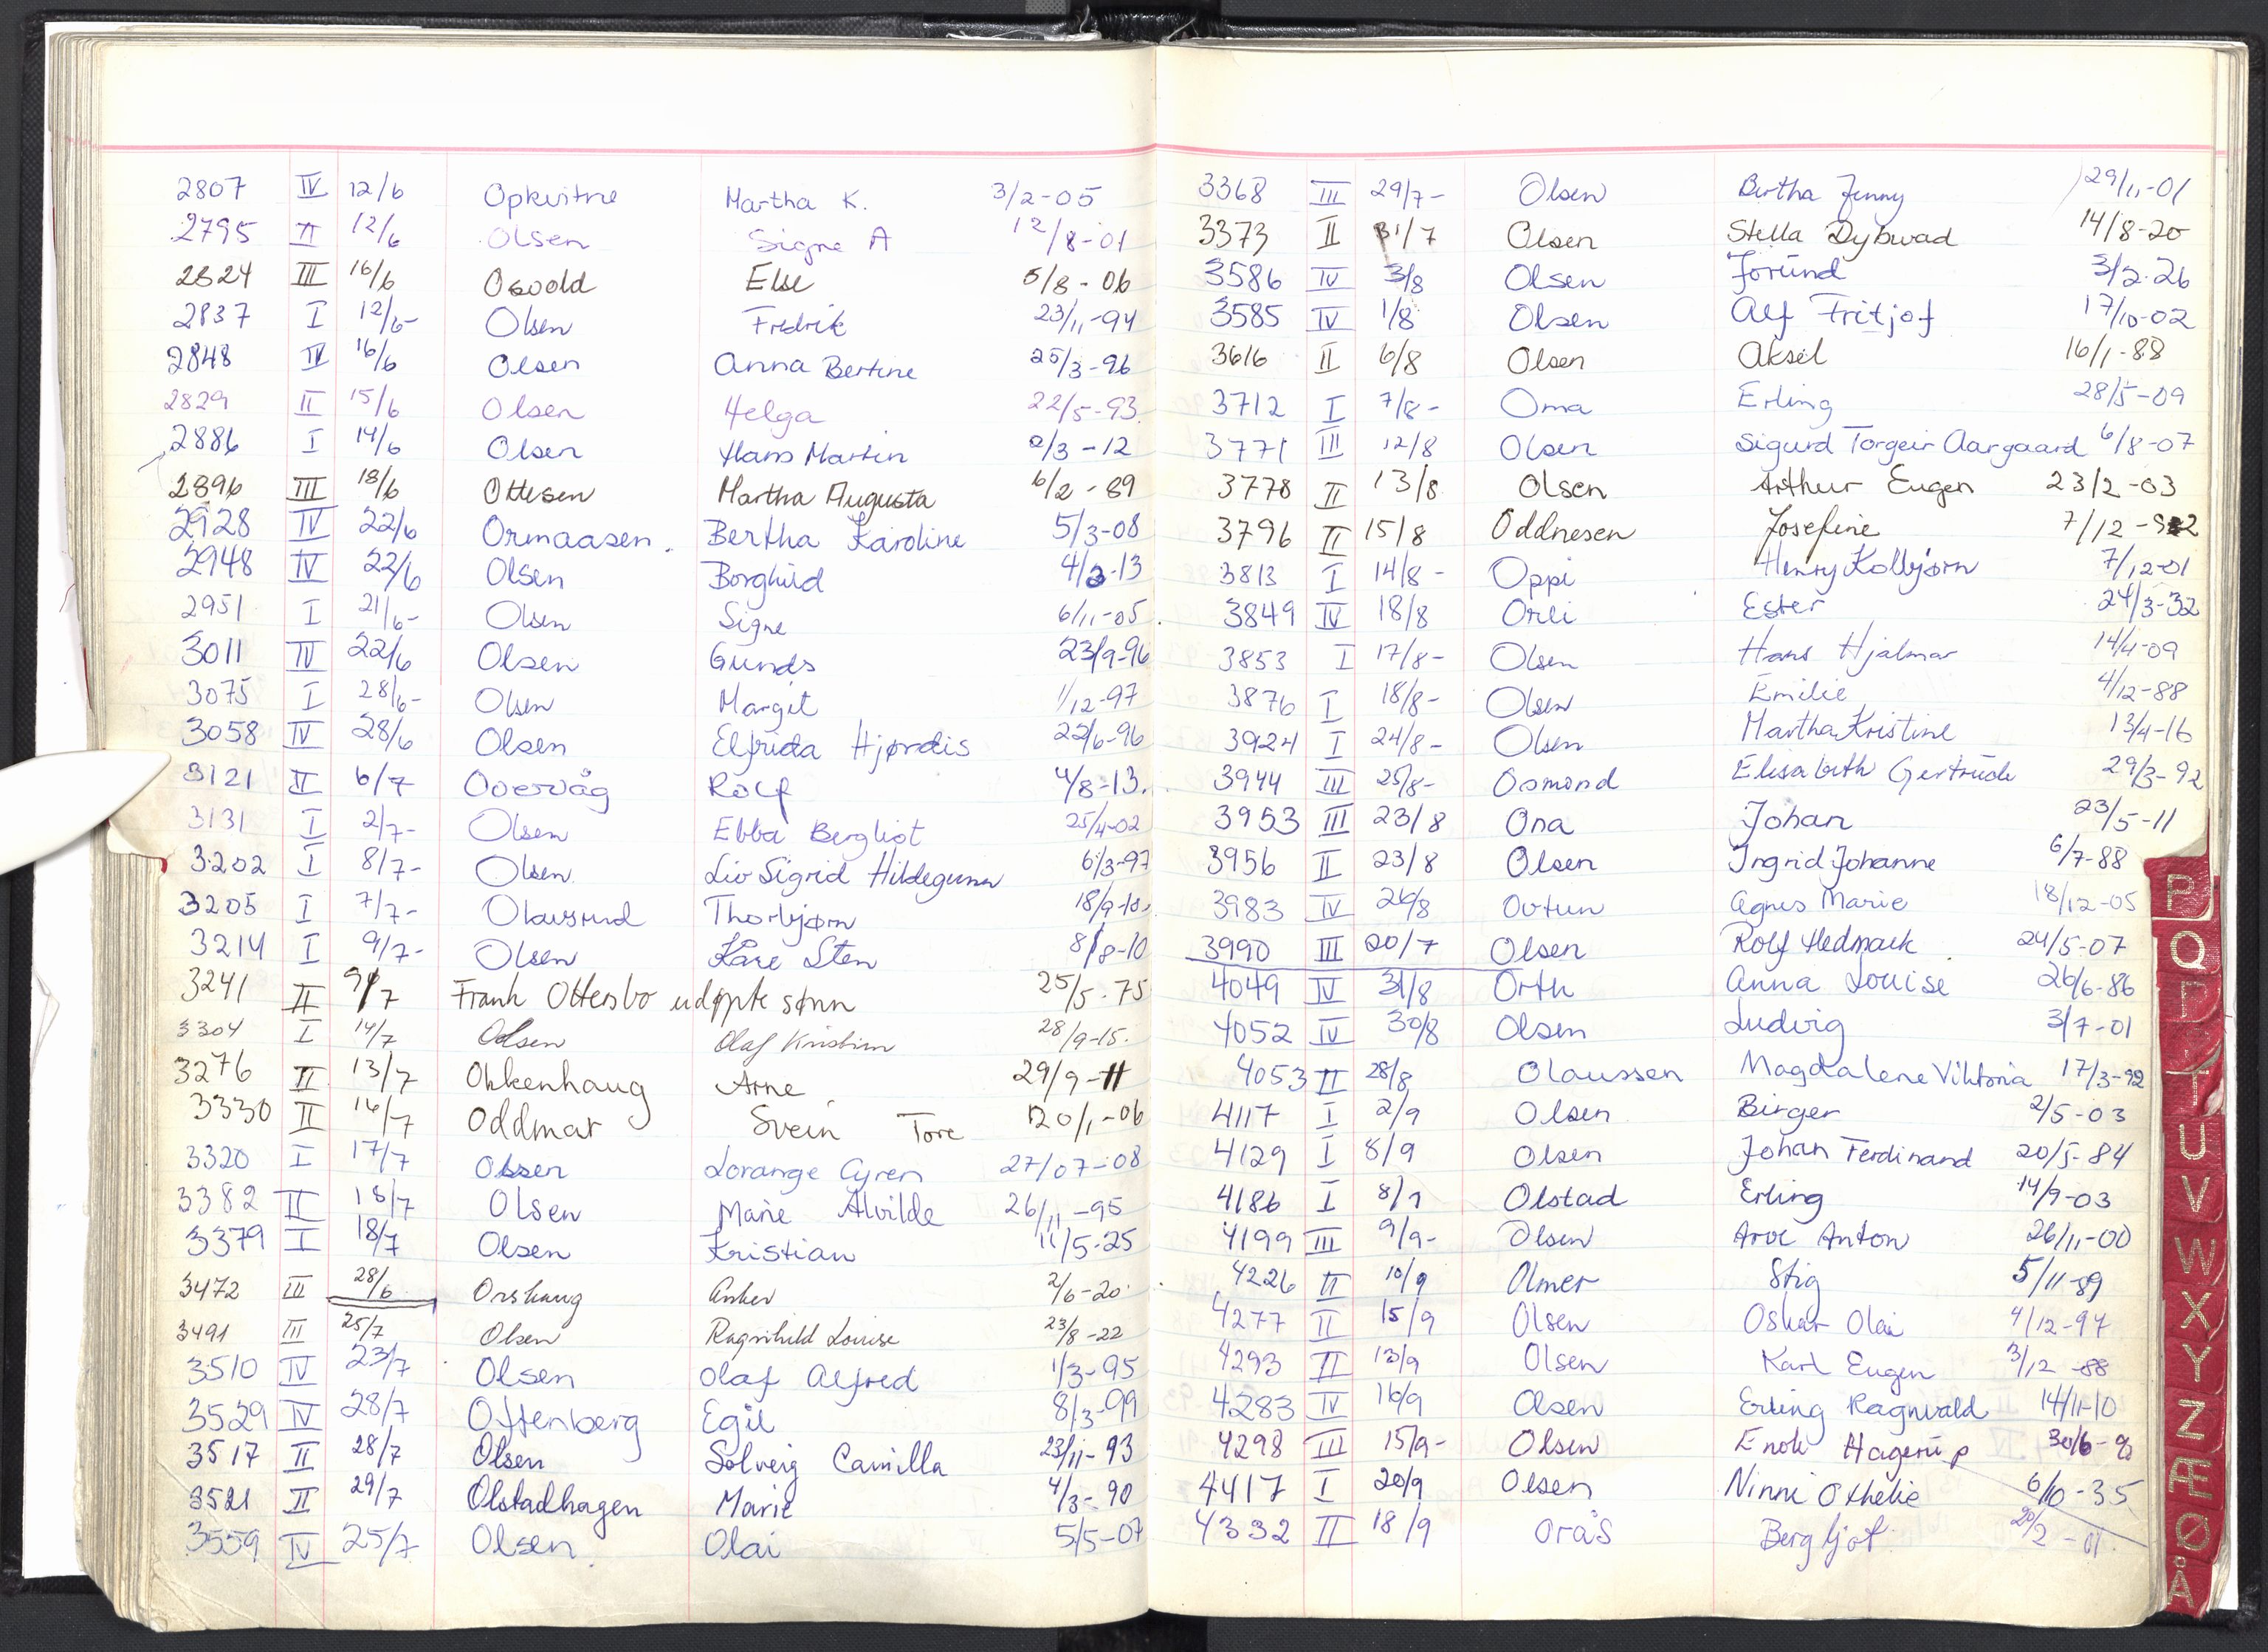 2807 IV 12/6 Opkvitne Martha K. 3/2-05
2795 II 12/6 Olsen Signe A 12/8-01
2824 III 16/6 Osvold Else 5/8-06
2837 I 12/6- Olsen Fredrik 23/11-94
2848 IV 16/6 Olsen Anna Bertine 25/3-96
2829 II 15/6 Olsen Helga 22/5-93
2886 I 14/6 Olsen Hans Martin 2/3-12
2896 III 18/6 Ottesen Martha Augusta 6/2-89
2928 IV 22/6 Ormaasen. Bertha Karoline 5/3-08
2948 IV 22/6 Olsen Borghild 4/3-13
2951 I 21/6- Olsen Signe 6/11-05
3011 IV 22/6 Olsen Gunds 23/9-96
3075 I 28/6- Olsen Margit 1/12-97
3058 IV 28/6 Olsen Elfrida Hjørdis 22/6-96
3121 II 6/7 Overvåg Rolf 4/8-13.
3131 I 2/7- Olsen Ebba Bergliot 25/4-02
3202 I 8/7- Olsen Liv Sigrid Hildegunn 6/3-97
3205 I 7/7- Olavsrud Thorbjørn 18/9-10
3214 I 9/7- Olsen Kåre Sten 8/8-10
3241 II 9/7 Frank Ottersbo udøpte sønn 25/5-75
3304 I 14/7 Olsen Olaf Kristian 28/9-15.
3276 II 13/7 Okkenhaug Arne 29/9-11
3330 II 16/7 Oddmar Svein Tore 20/1-06
3320 I 17/7 Olsen Lorange Gyren 27/07-08
3382 II 18/7 Olsen Marie Alvilde 26/11-95
3379 I 18/7 Olsen Kristian 11/5-25
3472 III 28/6 Orshaug Anker 2/6-20
3491 III 25/7 Olsen Ragnhild Louise 23/8-22
3510 IV 23/7 Olsen Olaf Alfred 1/3-95
3529 IV 28/7 Offenberg Egil 8/3-99
3517 II 28/7 Olsen Solveig Camilla 23/11-93
3521 II 29/7 Olstadhagen Marie 4/3-90
3559 IV 25/7 Olsen Olai 5/5-07
3368 III 29/7- Olsen Bertha Jenny 29/11-01
3373 II 31/7 Olsen Stella Dybwad 14/8-20
3586 IV 3/8 Olsen Jorund 3/2-26
3585 IV 1/8 Olsen Alf Fritjof 17/10-02
3616 II 6/8 Olsen Aksel 16/1-88
3712 I 7/8- Oma Erling 28/5-09
3771 III 12/8 Olsen Sigurd Torgeir Aargaard 6/8-07
3778 II 13/8 Olsen Arthur Eugen 23/2-03
3796 II 15/8 Oddnesen Josefine 7/12-92
3813 I 14/8- Oppi Henry Kolbjørn 7/12-01
3849 IV 18/8 Orli Ester 24/3-32
3853 I 17/8- Olsen Hans Hjalmar 14/4-09
3876 I 18/8- Olsen Emilie 4/12-88
3924 I 24/8- Olsen Martha Kristine 13/4-16
3944 III 25/8- Osmond Elisabeth Gertrude 29/3-92
3953 III 23/8 Ona Johan 23/5-11
3956 II 23/8 Olsen Ingrid Johanne 6/7-88
3983 IV 26/8 Ovtun Agnes Marie 18/12-05
3990 III 20/7 Olsen Rolf Hedmark 24/5-07
4049 IV 31/8 Orth Anna Louise 26/6-86
4052 IV 30/8 Olsen Ludvig 3/7-01
4053 II 28/8 Olaussen Magdalene Viktoria 17/3-92
4117 I 2/9 Olsen Birger 2/5-03
4129 I 8/9 Olsen Johan Ferdinand 20/5-84
4186 I 8/9 Olstad Erling 14/9-03
4199 III 9/9- Olsen Arve Anton 26/11-00
4226 II 10/9 Olmer Stig 5/11-89
4277 II 15/9 Olsen Oskar Olai 4/12-97
4293 II 13/9 Olsen Karl Eugen 3/12-88
4283 IV 16/9 Olsen Erling Ragnvald 14/11-10
4298 III 15/9- Olsen Enok Hagerup 30/6-
4417 I 20/9 Olsen Ninni Othelie 6/10-35
4332 II 18/9 Orås Bergljot 20/2-01.
P
Q
T
U
V
W
X
Y
Z
Æ
Ø
Å